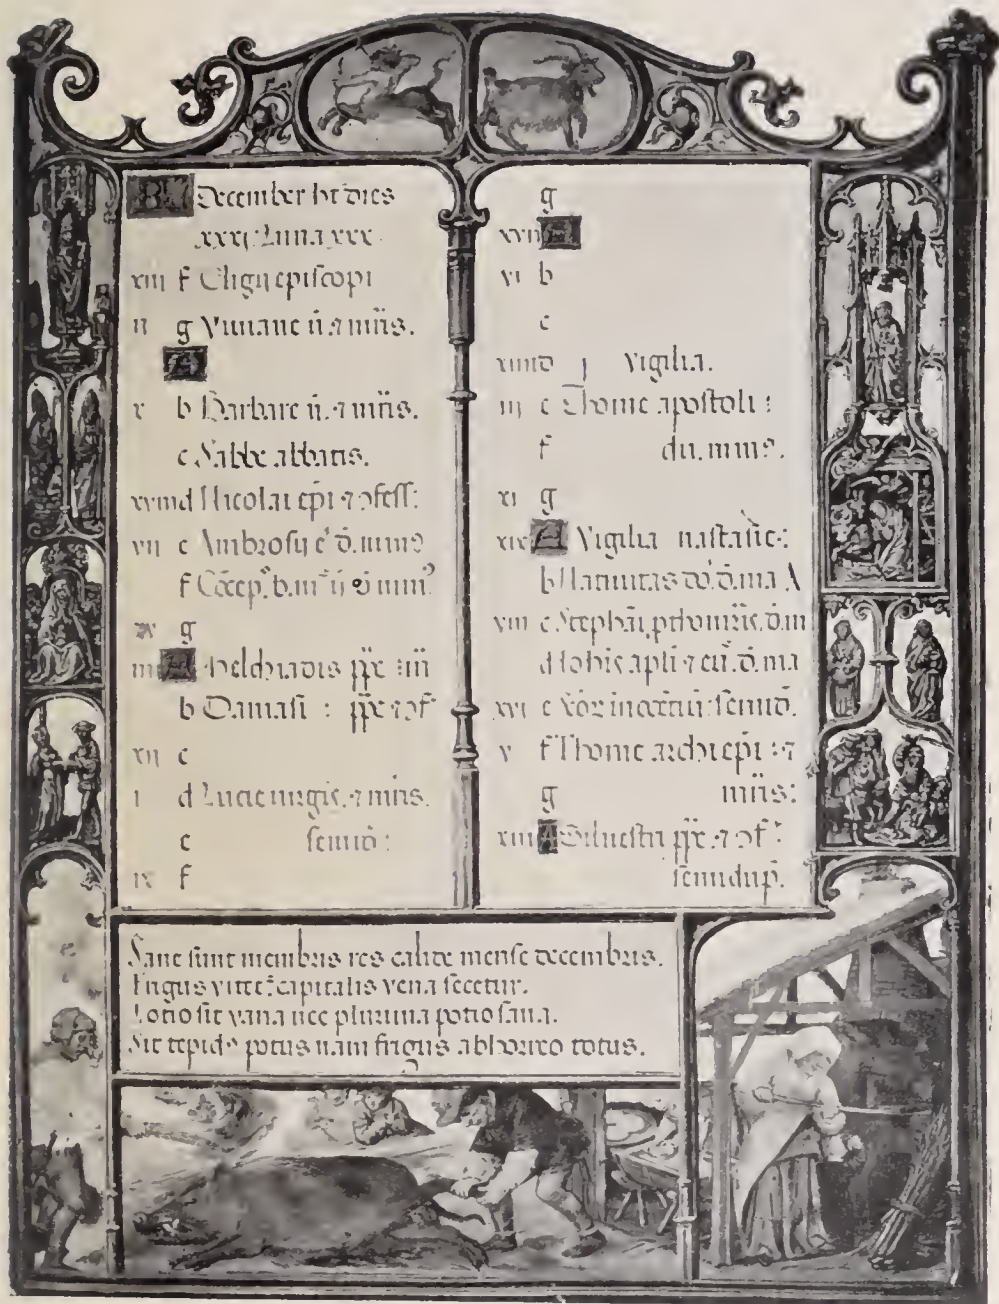 KL December ht dies
xxxj Luna xxx.
xiii f Eligij episcopi
ii g Viuiane ū. ⁊ mr̄is.
A
x b Barbare ū. ⁊ mr̄is.
c Sabbe abbatis.
xviii d Nicolai ep̄i ⁊ ɔfess:
vii e Ambrosij
f
xv g
iiii A Melchiadis
b Damasi : ⁊ ɔf
xii c
i d Lucie uirgis. ⁊ mr̄is.
e semid̄ :
ix f
g
xvii A
vi b
c
xiiii d j vigilia.
iii e Thome apostoli :
f du. minꝰ.
xi g
xix A Vigilia
b Natiuitas
viii c Stephāi
d Iohīs apl̄i ⁊ eu̅.
xvi e semid̄.
v f Thome archiep̄i : ⁊
g mr̄is:
xiii A Siluestri ⁊ ɔf :
semidup̄.
Sane sunt membris res calide mense decembris.
Frigus vitet᷑ capitalis vena secetur.
Lotio sit vana nec plurima potio sana.
Sit tepidꝰ potus nam frigus abhorreo totus.